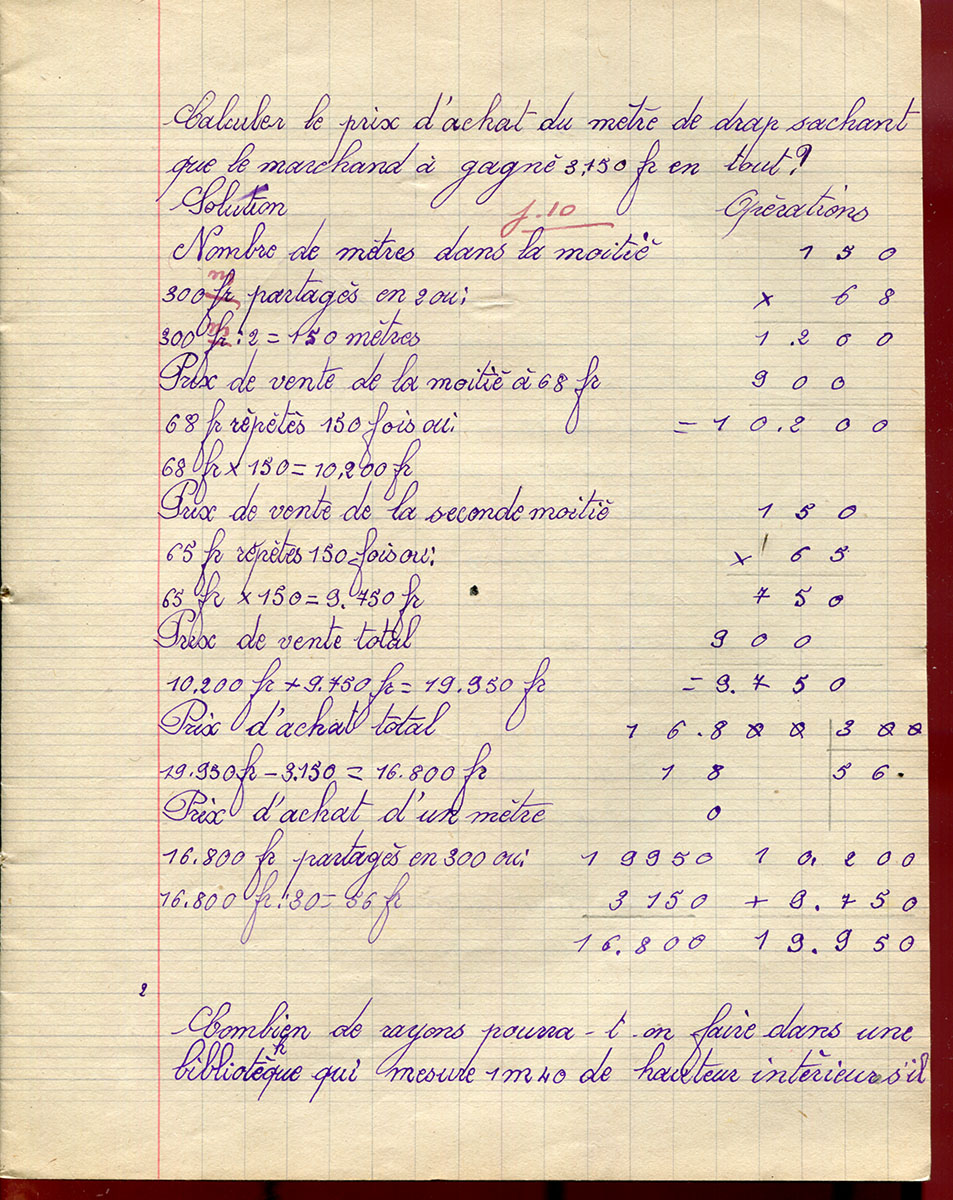 Calculer le prix d'achat du mètre de drap sachant
que le marchand à gagné 3,150 fr en tout?
Solution j.10 Opérations
Nombre de mètres dans la moitié 1 5 0
300 fr m partagés en 2 ou: × 6 8
300 fr m : 2 = 150 mètres 1 . 2 0 0
Prix de vente de la moitié à 68 fr 9 0 0
68 fr répétés 150 fois ou: = 1 0 . 2 0 0
68 fr × 150 = 10,200 fr
Prix de vente de la seconde moitié 1 5 0
65 fr répétés 150 fois ou: × 6 5
65 fr × 150 = 9.750 fr 7 5 0
Prix de vente total 9 0 0
10.200 fr + 9.750 fr = 19.950 fr = 9. 7 5 0
Prix d'achat total 1 6 . 8 0 0 3 0 0
19.950 fr - 3.150 = 16.800 fr 1 8 5 6 .
Prix d'achat d'un mètre 0
16.800 fr partagés en 300 ou: 1 9 9 5 0 1 0. 2 0 0
16.800 fr : 30 = 56 fr 3 1 5 0 + 9 . 7 5 0
1 6 . 8 0 0 1 9 . 9 5 0
2
Combien de rayons pourra-t-on faire dans une
bibliothèque qui mesure 1m40 de hauteur intérieur s'il